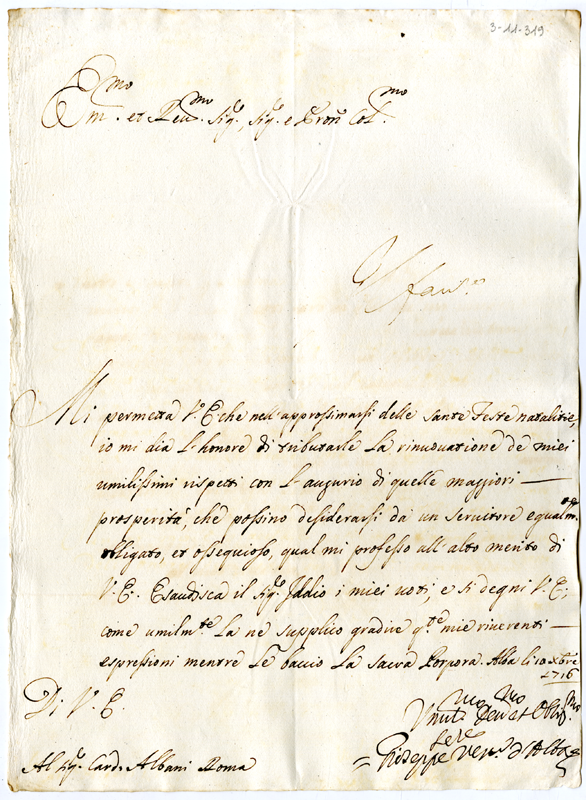 3-11-319
Em.mo et Reu.mo Sig.re, Sig.re e Pron Col.mo
Mi permetta V.E. che nell'approssimarsi delle Sante Feste natalitie,
io mi dia l'honore di tributarle la rinuouatione de miei
umilissimi rispetti con l'augurio di quelle maggiori —
prosperità, che possino desiderarsi da un seruitore equalm.te
obligato, et ossequioso, qual mi professo all'alto merito di
V.E. Esaudisca il Sig.re Iddio i miei uoti, e si degni V.E;
come umilm.te la ne supplico gradire q.te mie riuerenti —
espressioni mentre le baccio la sacra Porpora. Alba li 10 Xbre
1716
Di V.E.
Um.mo Deu.mo et Obl.mo
Ser.e
Al Sig.r Card. Albani Roma
= Giuseppe Vesc.o d'Alba